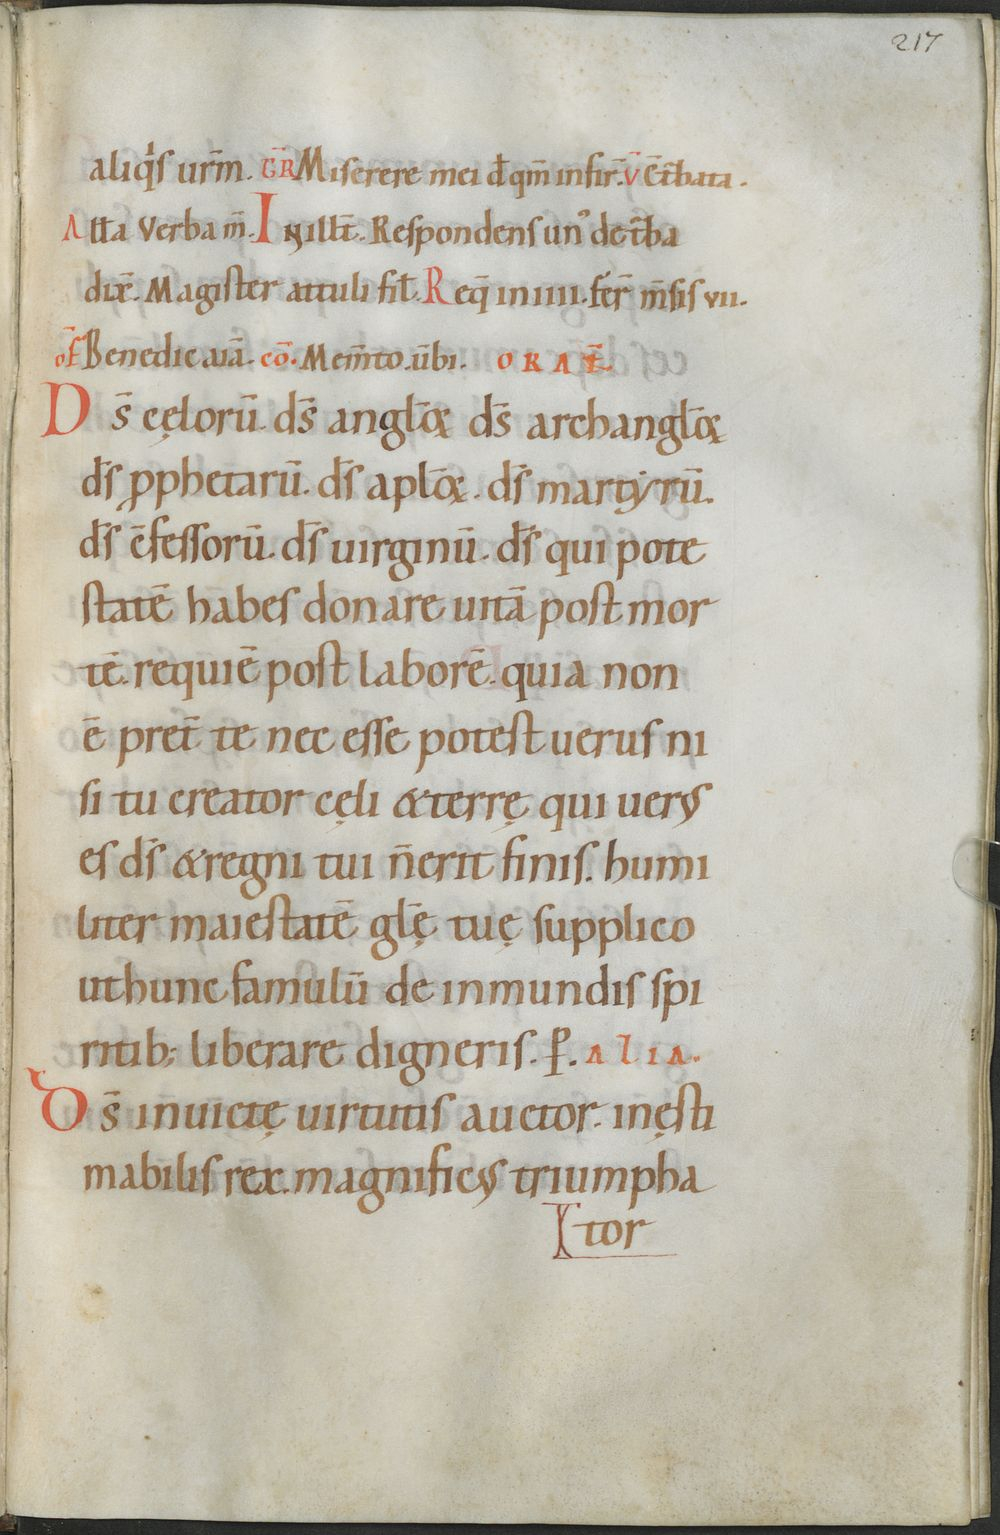 217
aliqͥs ur̄m. GR̄ Miserere mei d̄ qm̄ infir̄. V̄ C̄t͂bata.
Aƚƚa Verba m̄. In illƚ̄. Respondens un᾿ de t͂ba
dix̄. Magister attuli fiƚ. Req̄ in iiii. fer̄ m̄sis vii.
oF̄ Benedic aīā. cō. Mem̄to. ūbi. ORAT̄.
Ds̄ cęlorū. ds̄ angƚoꝝ ds̄ archangƚoꝝ
ds̄ ꝓphetarū. ds̄ apƚoꝝ. ds̄ martẏrū.
ds̄ c̄fessorū. ds̄ uirginū. ds̄ qui pote
statē habes donare uitā post mor
tē. requiē post laborē. quia non
ē pret̄ te nec esse potest uerus ni
si tu creator cęli & terrę qui uerꝰ
es ds̄ & regni tui n̄ erit finis. humi
liter maiestatē gl̄ę tuę supplico
ut hunc famulū de inmundis spi
ritib; liberare digneris. ꝑ. Alia.
Ds̄ inuictę uirtutis auctor. inęsti
mabilis rex. magnificꝰ triumpha
tor